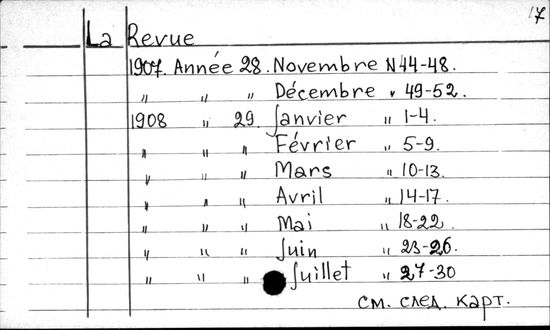 17
La Revue
1907. Année 28. Novembre N 44-48.
" " " Décembre " 49-52.
1908 " 29. Janvier " 1-4.
" " " Février " 5-9.
" " " Mars " 10-13.
" " " Avril " 14-17.
" " " Mai " 18-22.
" " " Juin " 23-26.
" " " Juillet " 27-30
см. след. карт.